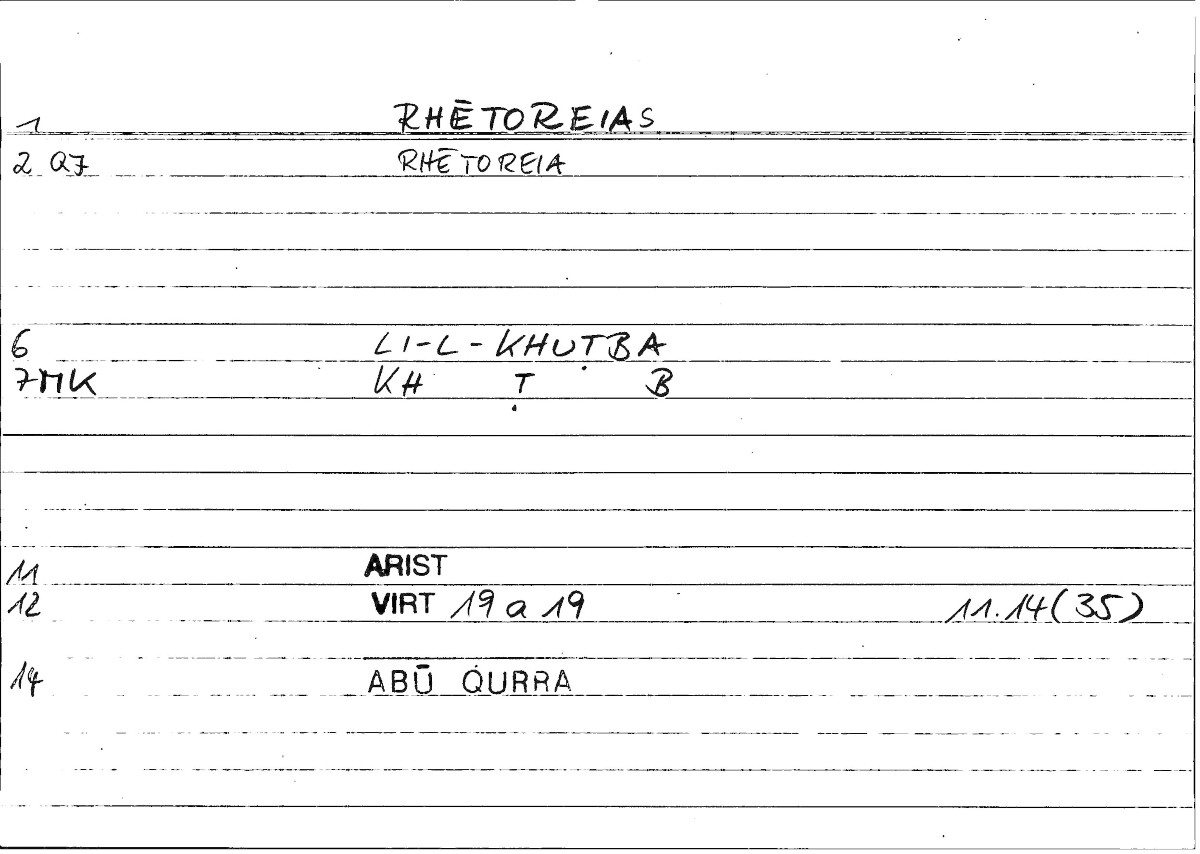 1 RHĒTOREIAS
2 QF RHĒTOREIA
6 LI-L-KHUṬBA
7MK KH Ṭ B
11 ARIST
12 VIRT 19 a 19 11.14(35)
14 ABŪ QURRA